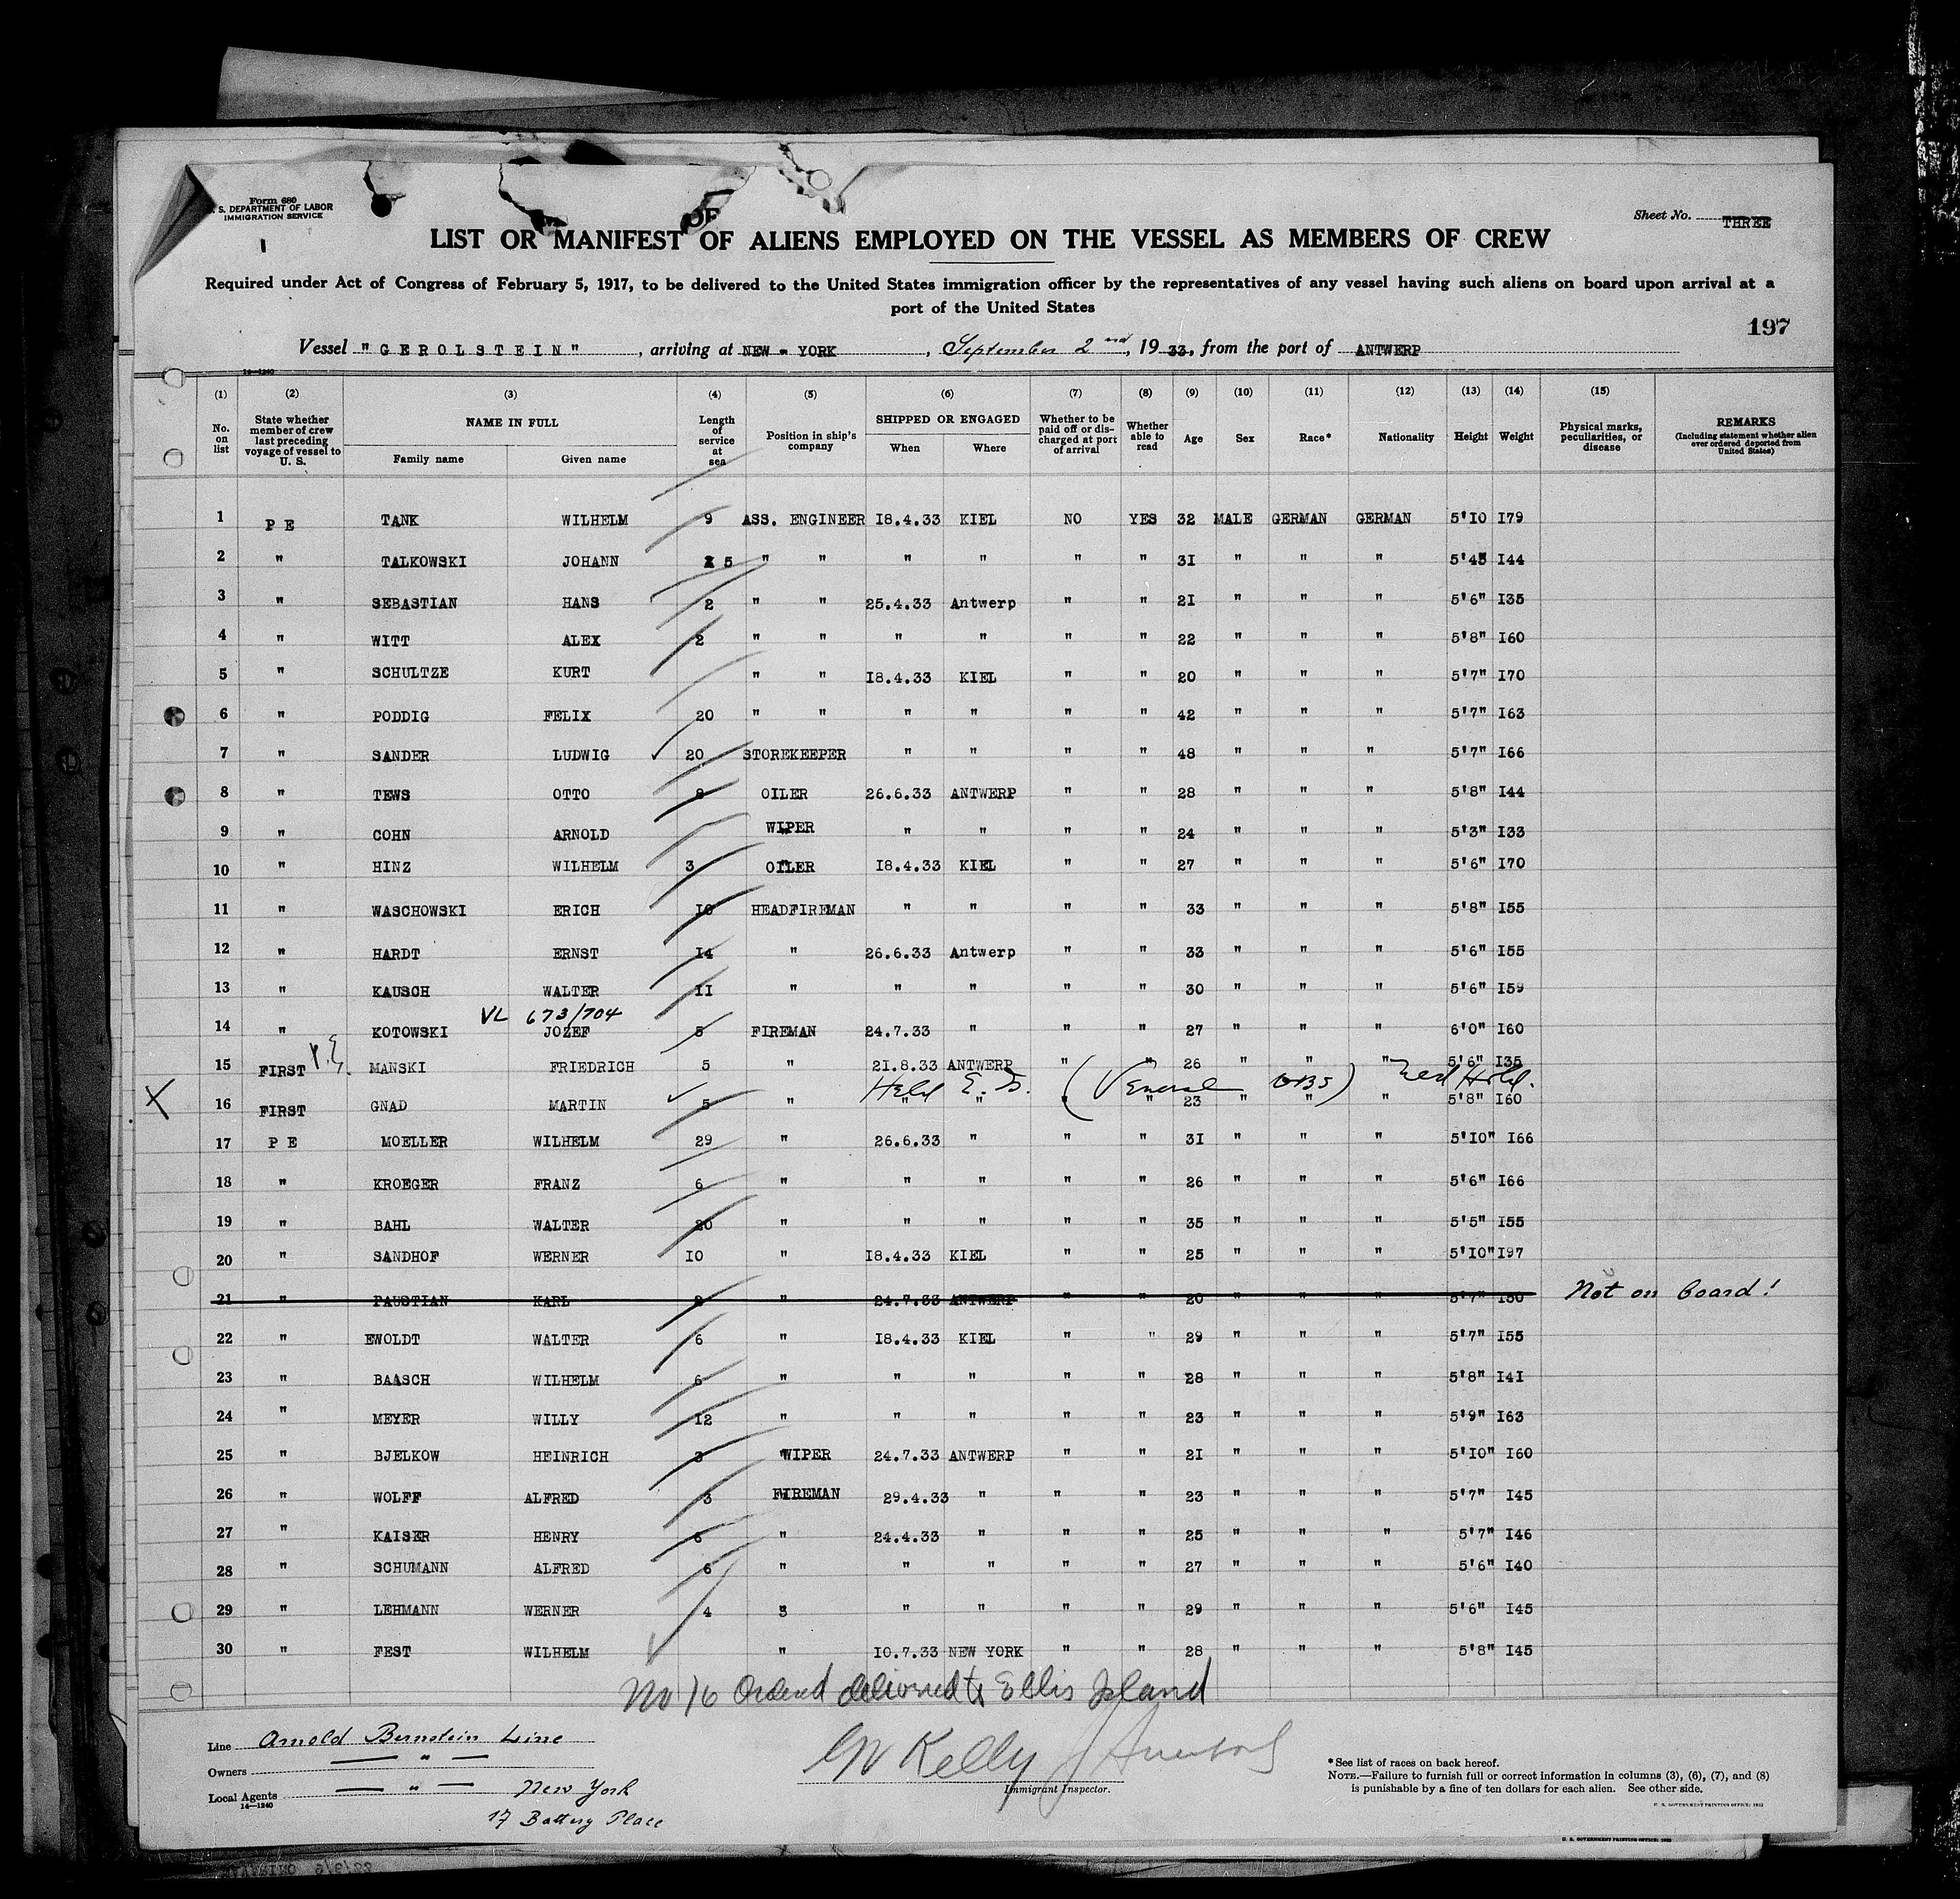 Form 680
U. S. DEPARTMENT OF LABOR
IMMIGRATION SERVICE
Sheet No. THREE
OF
LIST OR MANIFEST OF ALIENS EMPLOYED ON THE VESSEL AS MEMBERS OF CREW
Required under Act of Congress of February 5, 1917, to be delivered to the United States immigration officer by the representatives of any vessel having such aliens on board upon arrival at a
port of the United States
197
Vessel "GEROLSTEIN", arriving at NEW - YORK, September 2nd, 1933, from the port of ANTWERP
14—1240
(1) (2) (3) (4) (5) (6) (7) (8) (9) (10) (11) (12) (13) (14) (15)
No. on list | State whether member of crew last preceding voyage of vessel to U. S. | NAME IN FULL Family name Given name | Length of service at sea | Position in ship's company | SHIPPED OR ENGAGED When Where | Whether to be paid off or discharged at port of arrival | Whether able to read | Age | Sex | Race* | Nationality | Height | Weight | Physical marks, peculiarities, or disease | REMARKS (Including statement whether alien ever ordered deported from United States)
1 P E TANK WILHELM 9 ASS. ENGINEER I8.4.33 KIEL NO YES 32 MALE GERMAN GERMAN 5'I0 I79
2 " TALKOWSKI JOHANN 5 " " " " " " 3I " " " 5'4 I44
3 " SEBASTIAN HANS 2 " " 25.4.33 Antwerp " " 2I " " " 5'6" I35
4 " WITT ALEX 2 " " " " " " 22 " " " 5'8" I60
5 " SCHULTZE KURT " " I8.4.33 KIEL " " 20 " " " 5'7" I70
6 " PODDIG FELIX 20 " " " " " " 42 " " " 5'7" I63
7 " SANDER LUDWIG 20 STOREKEEPER " " " " 48 " " " 5'7" I66
8 " TEWS OTTO 8 OILER 26.6.33 ANTWERP " " 28 " " " 5'8" I44
9 " COHN ARNOLD WIPER " " " " 24 " " " 5'3" I33
10 " HINZ WILHELM 3 OILER I8.4.33 KIEL " " 27 " " " 5'6" I70
11 " WASCHOWSKI ERICH I0 HEADFIREMAN " " " " 33 " " " 5'8" I55
12 " HARDT ERNST I4 " 26.6.33 Antwerp " " 33 " " " 5'6" I55
13 " KAUSCH WALTER II " " " " " 30 " " " 5'6" I59
VL 673/704
14 " KOTOWSKI JOZEF 5 FIREMAN 24.7.33 " " " 27 " " " 6'0" I60
15 FIRST P.E. MANSKI FRIEDRICH 5 " 2I.8.33 ANTWERP " " 26 " " " 5'6" I35
Held E. I. (Venereal Hold.
16 FIRST GNAD MARTIN 5 " " " " " 23 " " " 5'8" I60
17 P E MOELLER WILHELM 29 " 26.6.33 " " " 3I " " " 5'I0" I66
18 " KROEGER FRANZ 6 " " " " " 26 " " " 5'6" I66
19 " BAHL WALTER 20 " " " " " 35 " " " 5'5" I55
20 " SANDHOF WERNER I0 " I8.4.33 KIEL " " 25 " " " 5'I0" I97
21 " PAUSTIAN KARL 2 " 24.7.33 ANTWERP " " 20 " " " 5'7" I50 Not on board!
22 " EWOLDT WALTER 6 " I8.4.33 KIEL " " 29 " " " 5'7" I55
23 " BAASCH WILHELM 6 " " " " " 28 " " " 5'8" I4I
24 " MEYER WILLY I2 " " " " " 23 " " " 5'9" I63
25 " BJELKOW HEINRICH 3 WIPER 24.7.33 ANTWERP " " 2I " " " 5'I0" I60
26 " WOLFF ALFRED 3 FIREMAN 29.4.33 " " " 23 " " " 5'7" I45
27 " KAISER HENRY 6 " 24.4.33 " " " 25 " " " 5'7" I46
28 " SCHUMANN ALFRED 6 " " " " " 27 " " " 5'6" I40
29 " LEHMANN WERNER 4 " " " " " 29 " " " 5'6" I45
30 " FEST WILHELM " I0.7.33 NEW YORK " " 28 " " " 5'8" I45
No 16 Ordered delivered to Ellis Island
Line Arnold Bernstein Line
Owners — " —
Local Agents — " — New York
14—1240
17 Battery Place
Kelly
Immigrant Inspector.
*See list of races on back hereof.
NOTE.—Failure to furnish full or correct information in columns (3), (6), (7), and (8)
is punishable by a fine of ten dollars for each alien. See other side.
U. S. GOVERNMENT PRINTING OFFICE: 1932
U. S. GOVERNMENT PRINTING OFFICE: 1932